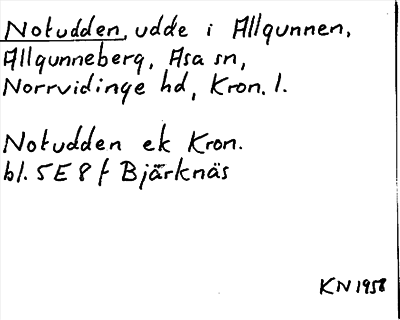 Notudden, udde i Allgunnen,
Allgunneberg, Asa sn,
Norrvidinge hd, Kron. l.
Notudden ek Kron.
bl. 5E 8f Bjärknäs
KN 1958